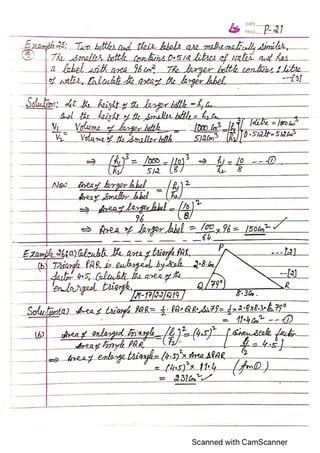 DATE
PAGE P-21
Example 25: Two bottles and their labels are mathematically similar.
The smaller bottle contains 0.512 litres of water and has
a label with area 96 cm². The larger bottle contains 1 litre
of water. Calculate the area of the larger label. ---[3]
Solution: Let the height of the larger bottle = h₁ cm
and the height of the smaller bottle = h₂ cm
V₁/V₂ = Volume of larger bottle / Volume of the smaller bottle = 1000 cm³ / 512 cm³ = (h₁/h₂)³ | 1 litre = 1000 cm³ 0.512 lt = 512 cm³
⇒ (h₁/h₂)³ = 1000/512 = (10/8)³ ⇒ h₁/h₂ = 10/8 --- ①
Now Area of larger label / Area of smaller label = (h₁/h₂)²
⇒ Area of larger label / 96 = (10/8)²
⇒ Area of larger label = 100/64 × 96 = 150 cm² ✓
Example 26: (a) Calculate the area of triangle PQR. ---[2]
(b) Triangle PQR is enlarged by scale
factor 4.5, Calculate the area of the ---[2]
enlarged triangle.
P
2.8 cm
Q 79°
R
8.3 cm
Solution (a) Area of triangle PQR = ½ · PQ · QR · Sin 79° = ½ × 2.8 × 8.3 × Sin 79°
= 11.4 cm² --- ①
(b) Area of enlarged Triangle / Area of Triangle PQR = (l₁/l₂)² = (4.5)² [Given scale factor l₁/l₂ = 4.5]
⇒ Area of enlarge triangle = (4.5)² × Area ΔPQR
= (4.5)² × 11.4 (from ①)
= 231 cm² ✓
Scanned with CamScanner